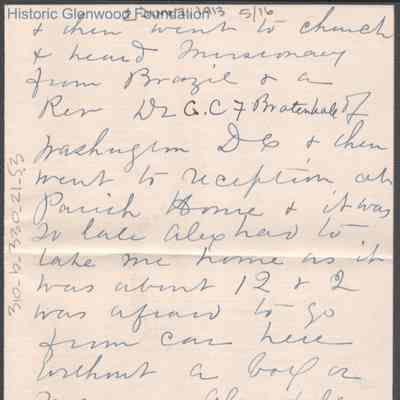 Historic Glenwood Foundation
1913 5/16
& then went to church
& heard Missionary
from Brazil & a
Rev Dr G. C F Bratenhale of
Washington D C & then
went to reception at
Parish Home & it was
so late Alex had to
take me home as it
was about 12 & I
was afraid to go
from car here
Without a boy or
310-b-330.21-53